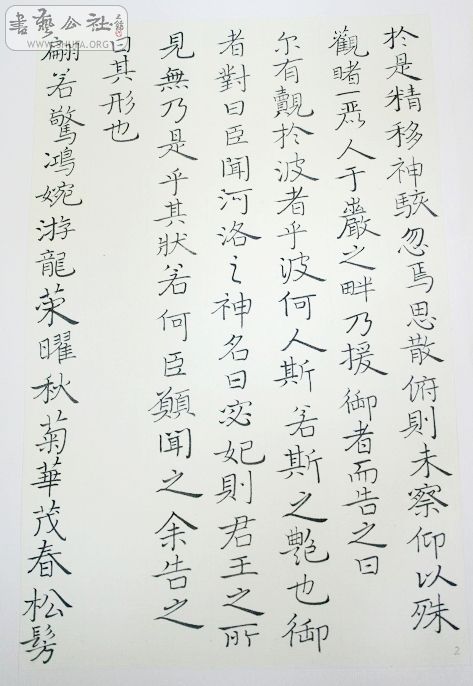 於是精移神駭忽焉思散俯則未察仰以殊
觀睹一麗人于巖之畔乃援御者而告之曰
尔有覿於彼者乎彼何人斯若斯之艷也御
者對曰臣聞河洛之神名曰宓妃則君王之所
見無乃是乎其狀若何臣願聞之余告之
曰其形也
翩若驚鴻婉游龍榮曜秋菊華茂春松髣
書藝公社
WWW.SHUFA.ORG
2